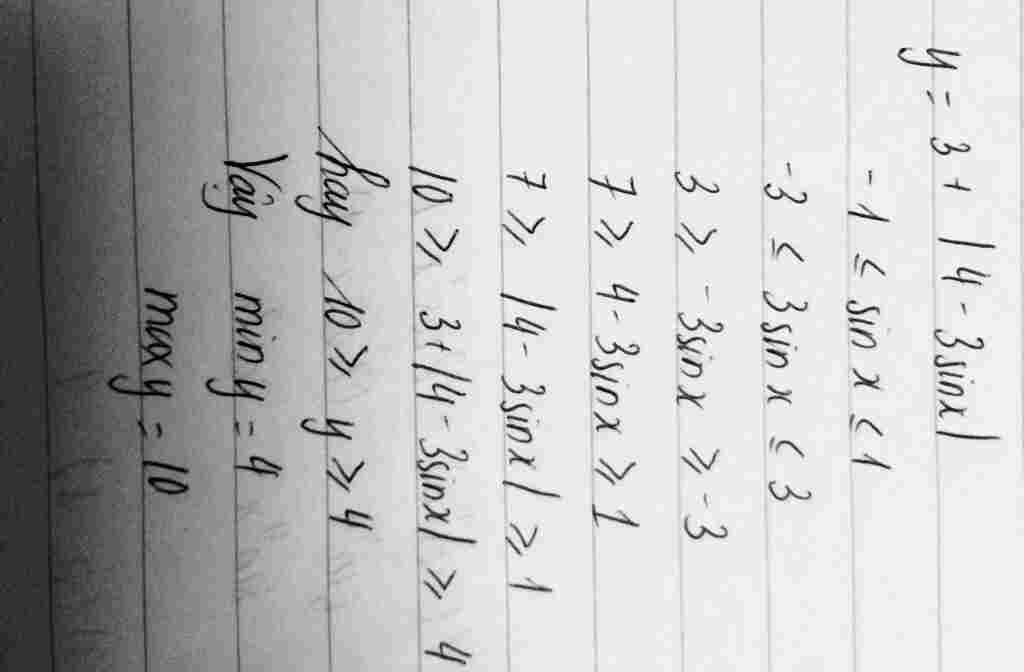 y = 3 + |4 - 3sinx|
-1 ≤ sin x ≤ 1
-3 ≤ 3sin x ≤ 3
3 ≥ -3sin x ≥ -3
7 ≥ 4 - 3sin x ≥ 1
7 ≥ |4 - 3sin x| ≥ 1
10 ≥ 3 + |4 - 3sinx| ≥ 4
hay 10 ≥ y ≥ 4
Vậy min y = 4
max y = 10